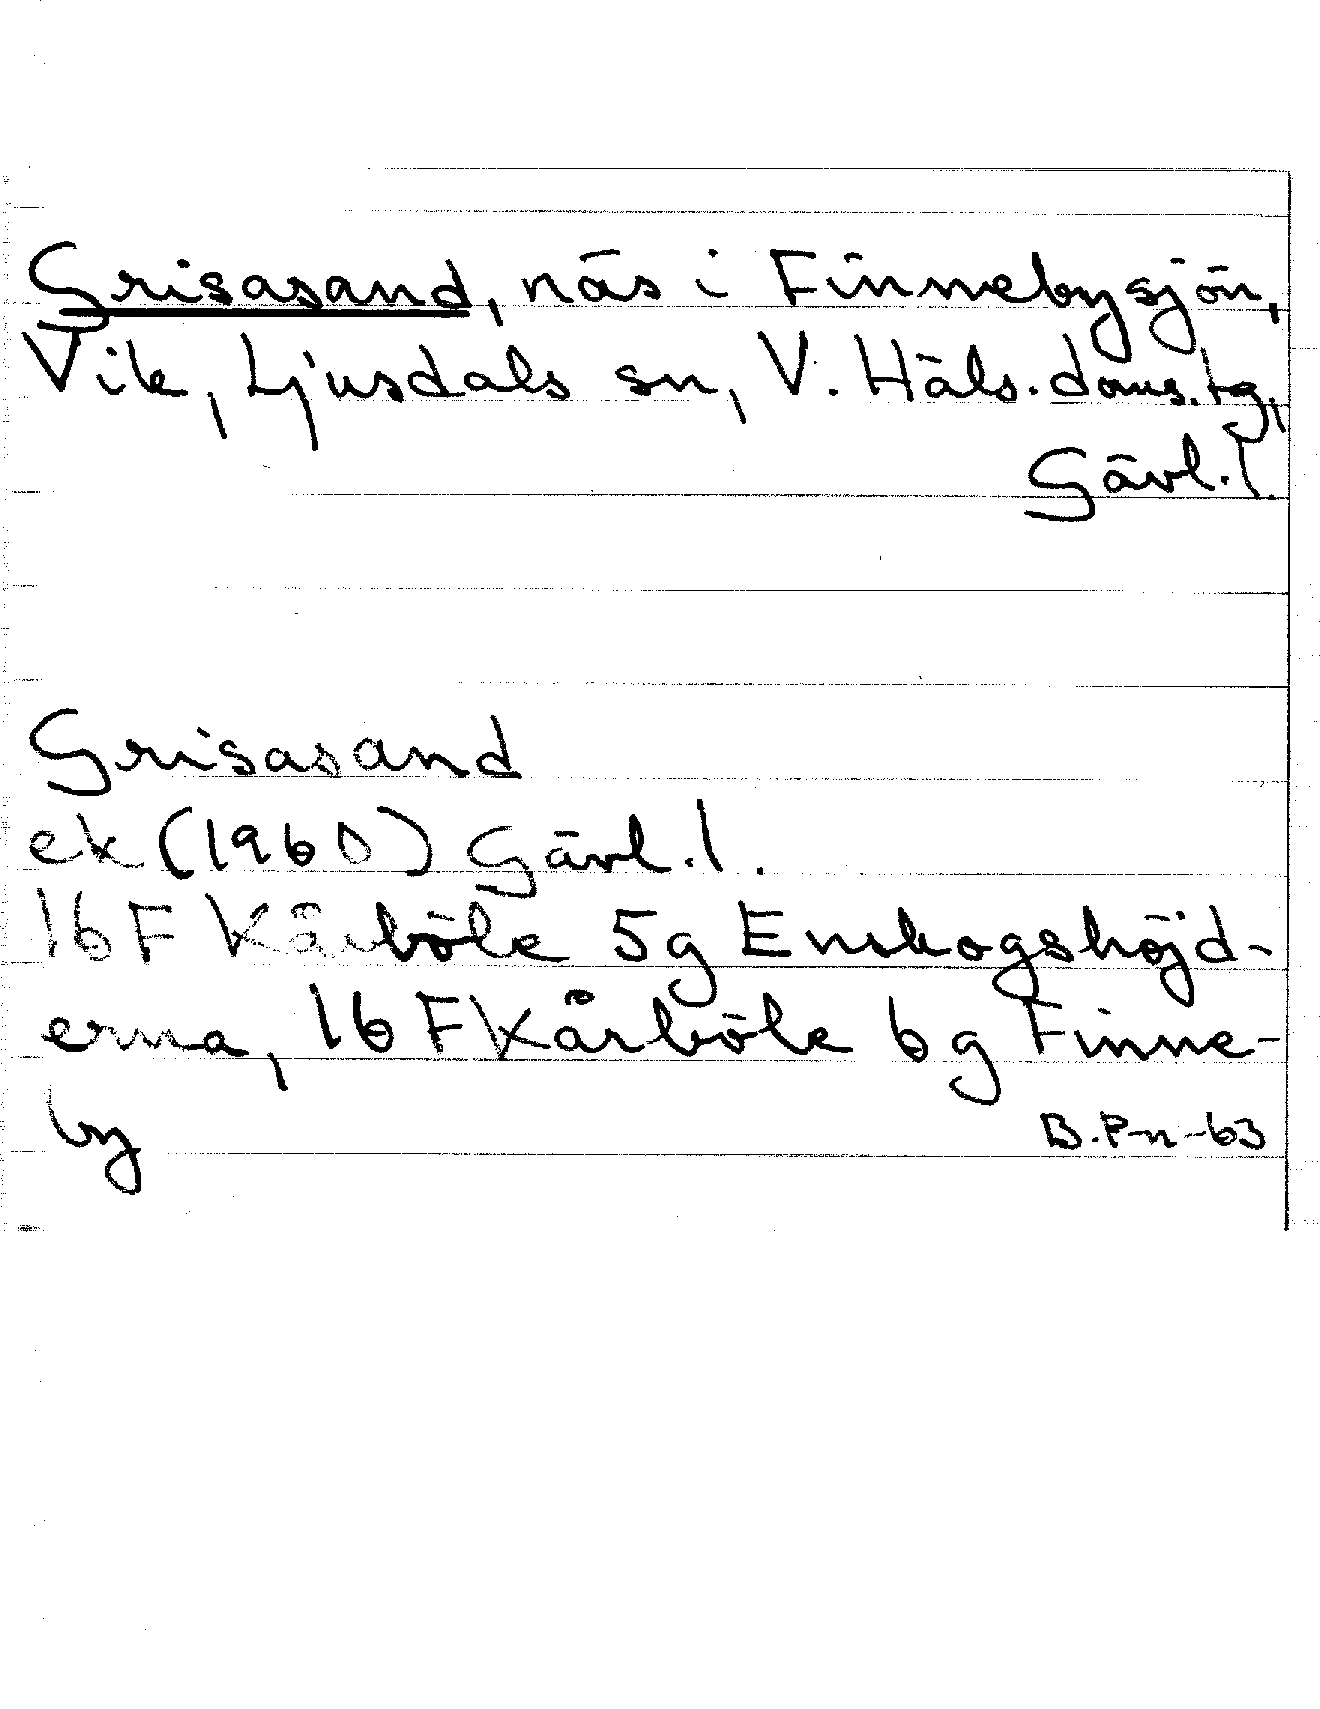 Grisasand, näs i Finnebysjön,
Vik, Ljusdals sn, V. Häls. doms. tg,
Gävl. l.
Grisasand
ek (1960) Gävl. l.
16 F Kårböle 5g Enskogshöjd-
erna, 16 F Kårböle 6g Finne-
by
B. P-n -63